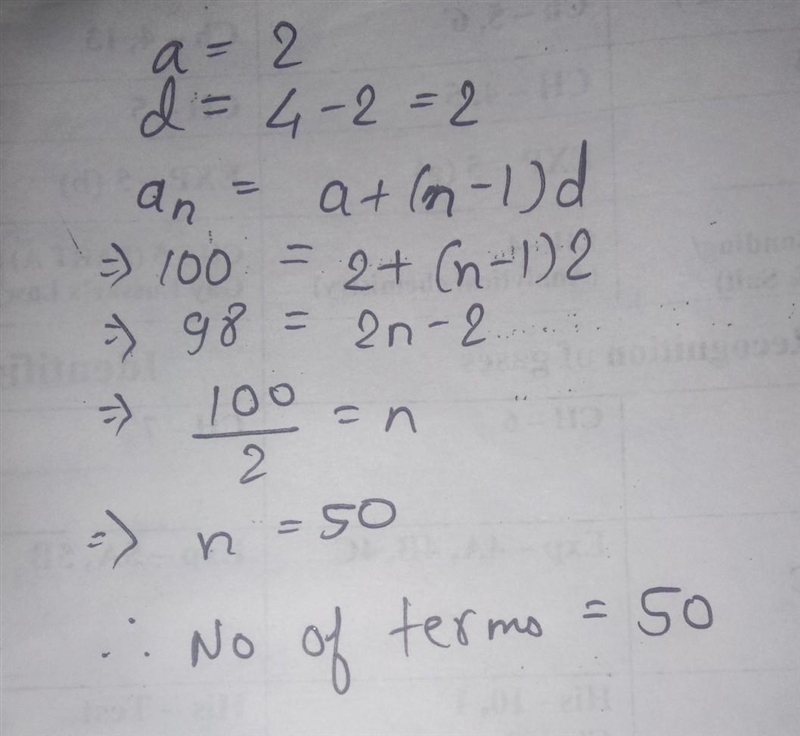 a = 2
d = 4 - 2 = 2
an = a + (n - 1) d
⇒ 100 = 2 + (n - 1) 2
⇒ 98 = 2n - 2
⇒ 100/2 = n
⇒ n = 50
∴ No of terms = 50